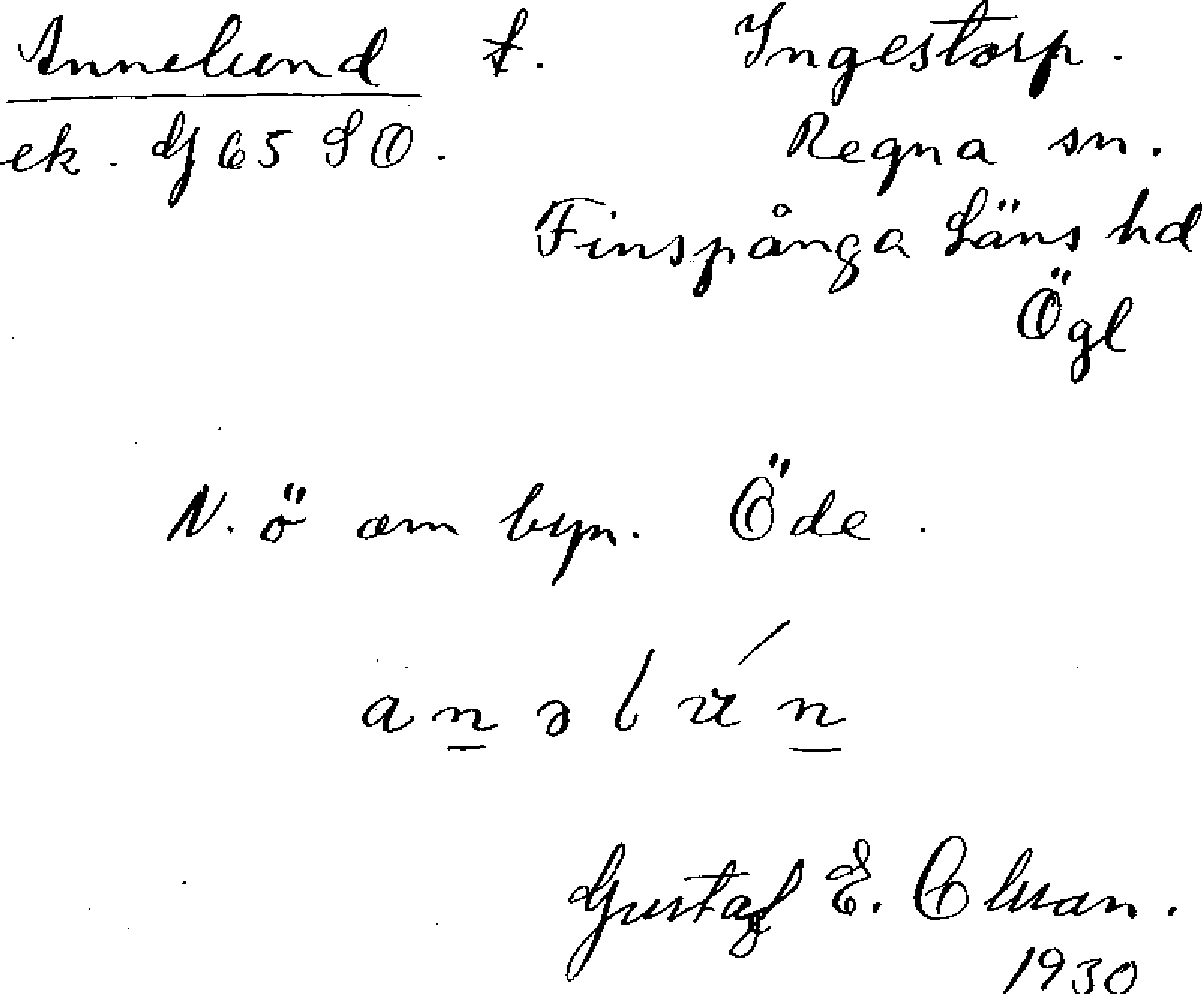 Annelund t. Ingestorp.
ek. Gf 65 SO. Regna sn.
Finspånga läns hd
Ögl
N. ö om byn. Öde.
Gustaf E. Olsson.
1930